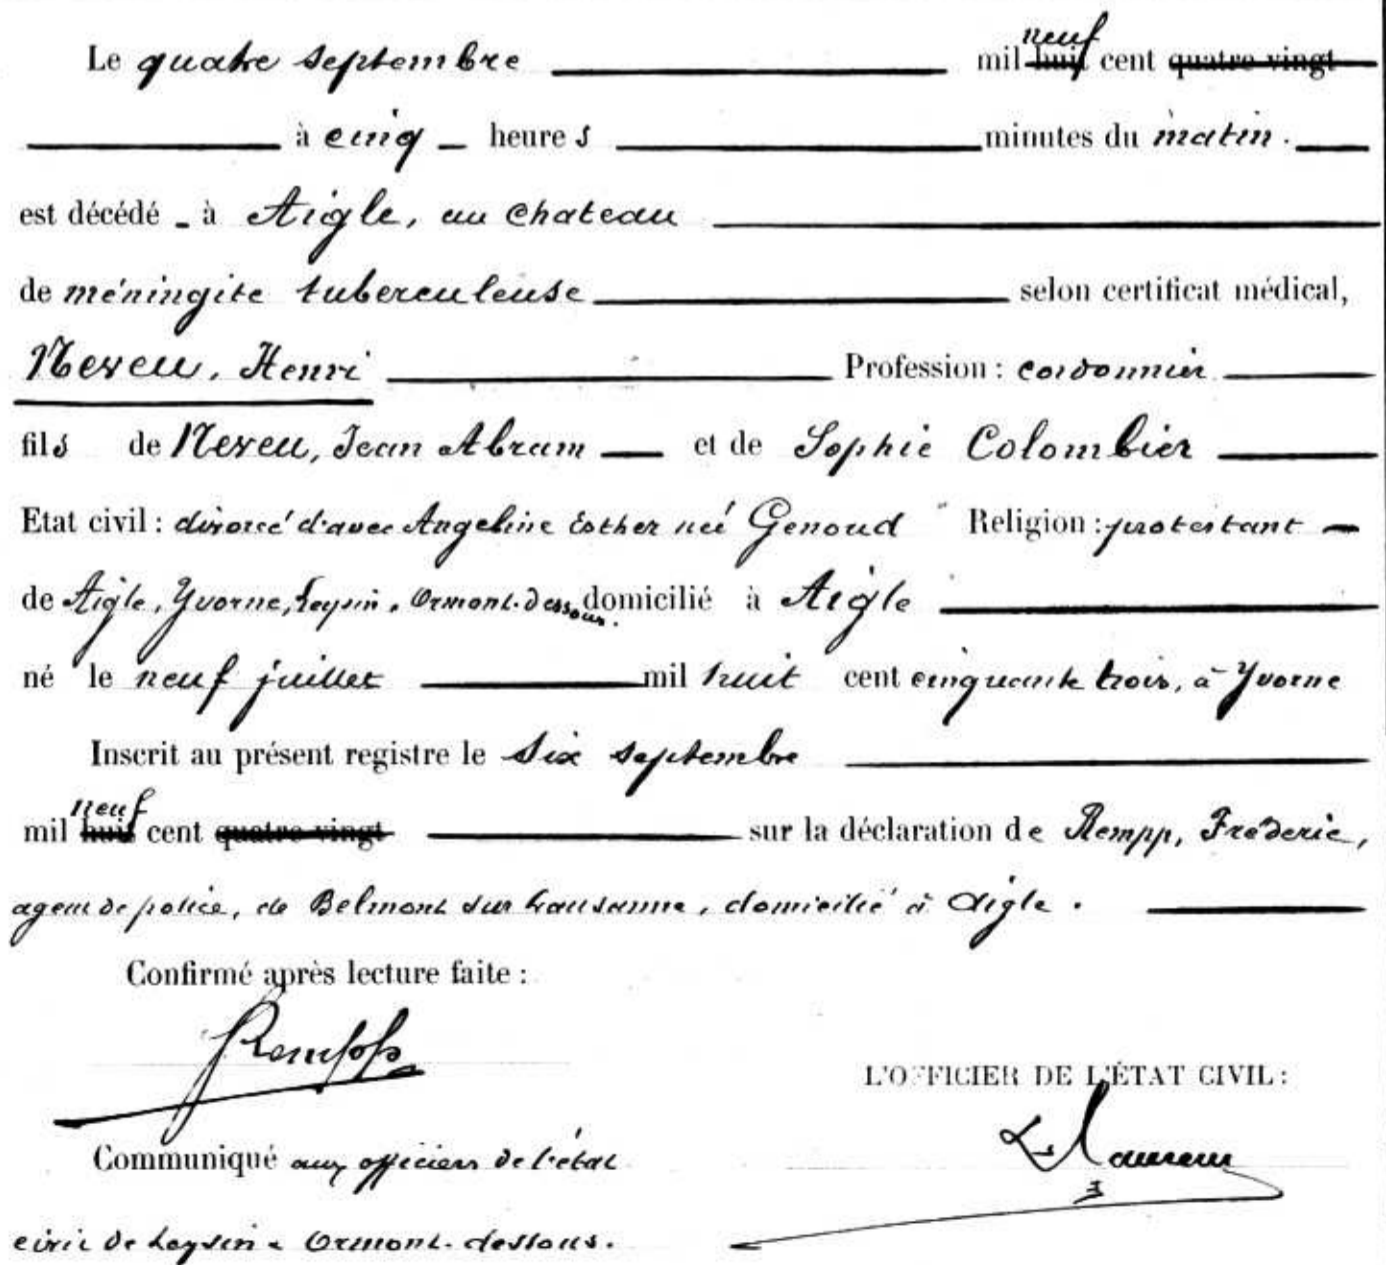 Le quatre septembre mil huit neuf cent quatre vingt
à cinq heures minutes du matin.
est décédé à Aigle, au Chateau
de méningite tuberculeuse selon certificat médical,
Neveu, Henri Profession : cordonnier
fils de Neveu, Jean Abram et de Sophie Colombier
Etat civil : divorcé d'avec Angeline Esther née Genoud Religion : protestant
de Aigle, Yvorne, Leysin, Ormont-dessous. domicilié à Aigle
né le neuf juillet mil huit cent cinquante trois, à Yvorne
Inscrit au présent registre le six septembre
mil huit neuf cent quatre vingt sur la déclaration de Rempp, Fréderic,
agent de police, de Belmont sur Lausanne, domicilié à Aigle.
Confirmé après lecture faite :
Rempp
L'OFFICIER DE L'ÉTAT CIVIL :
Communiqué aux officiers de l'état
civil de Leysin & Ormont-dessous.